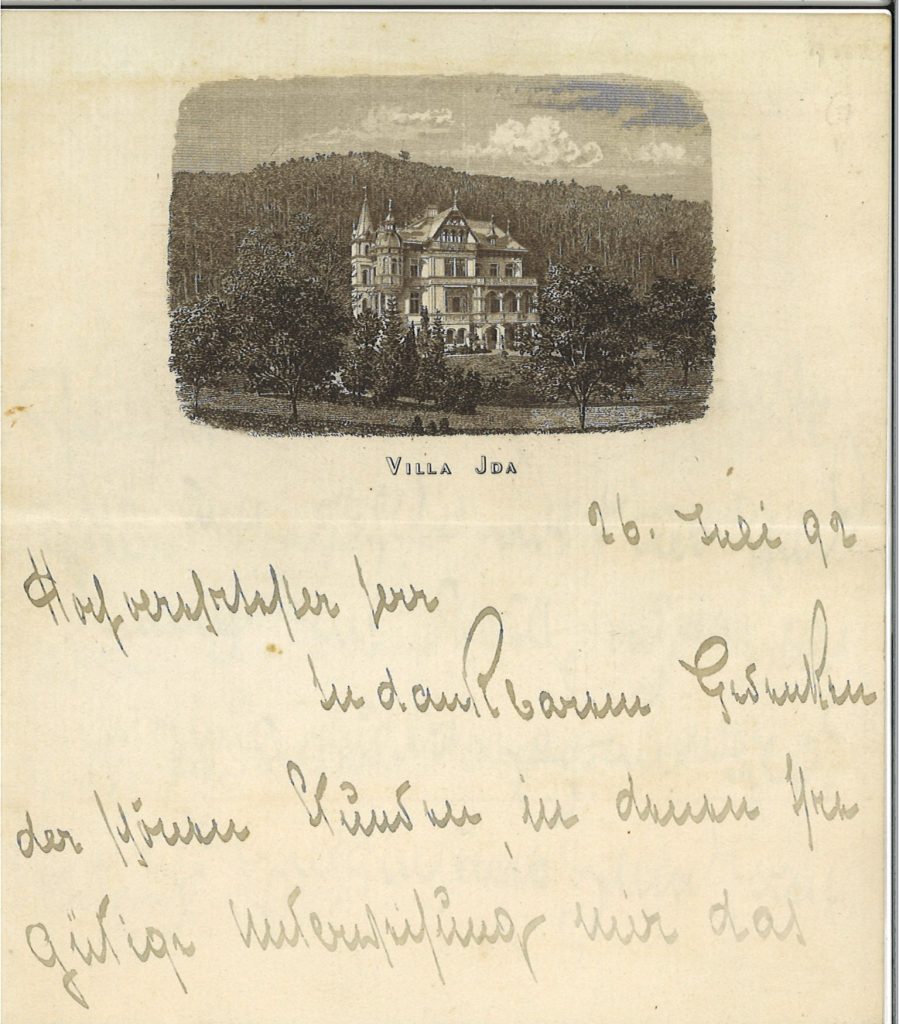 VILLA JDA
26. Juli 92
Hochverehrtester Herr
In dankbarem Gedenken
der schönen Stunden in denen Ihre
gütige Unterweisung mir das